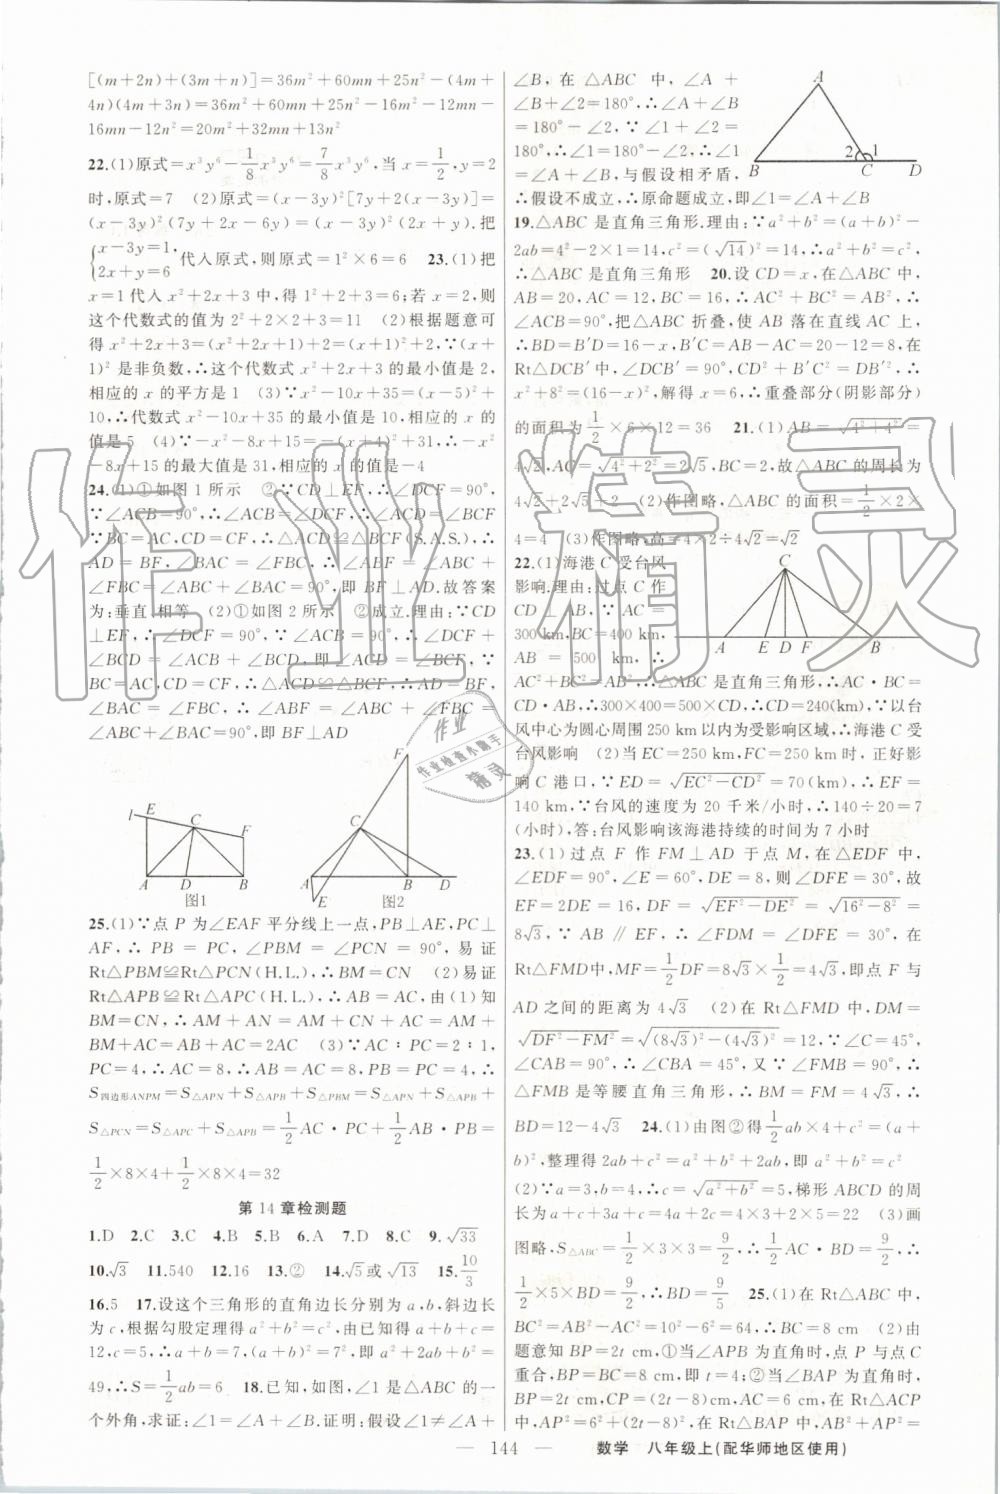 [(m+2n)+(3m+n)]=36m²+60mn+25n²-(4m+
4n)(4m+3n)=36m²+60mn+25n²-16m²-12mn-
16mn-12n²=20m²+32mn+13n²
22.(1)原式=x³y⁶-1/8x³y⁶=7/8x³y⁶,当x=1/2,y=2
时,原式=7 (2)原式=(x-3y)²[7y+2(x-3y)]=
(x-3y)²(7y+2x-6y)=(x-3y)²(2x+y).把
{x-3y=1,2x+y=6代入原式,则原式=1²×6=6 23.(1)把
x=1代入x²+2x+3中,得1²+2+3=6;若x=2,则
这个代数式的值为2²+2×2+3=11 (2)根据题意可
得x²+2x+3=(x²+2x+1)+2=(x+1)²+2,∵(x+
1)²是非负数,∴这个代数式x²+2x+3的最小值是2,
相应的x的平方是1 (3)∵x²-10x+35=(x-5)²+
10,∴代数式x²-10x+35的最小值是10,相应的x的
值是5 (4)∵-x²-8x+15=-(x+4)²+31,∴-x²-
8x+15的最大值是31,相应的x的值是-4
24.(1)①如图1所示 ②∵CD⊥EF,∴∠DCF=90°,
∵∠ACB=90°,∴∠ACB=∠DCF,∴∠ACD=∠BCF
∵BC=AC,CD=CF,∴△ACD≌△BCF(S.A.S.),∴
AD=BF,∠BAC=∠FBC,∴∠ABF=∠ABC+
∠FBC=∠ABC+∠BAC=90°,即BF⊥AD.故答案
为:垂直,相等 (2)①如图2所示 ②成立.理由:∵CD
⊥EF,∴∠DCF=90°,∵∠ACB=90°,∴∠DCF+
∠BCD=∠ACB+∠BCD,即∠ACD=∠BCF,∵
BC=AC,CD=CF,∴△ACD≌△BCF,∴AD=BF,
∠BAC=∠FBC,∴∠ABF=∠ABC+∠FBC=
∠ABC+∠BAC=90°,即BF⊥AD
l E C F A D B 图1
F C A B D E 图2
25.(1)∵点P为∠EAF平分线上一点,PB⊥AE,PC⊥
AF,∴PB=PC,∠PBM=∠PCN=90°,易证
Rt△PBM≌Rt△PCN(H.L.),∴BM=CN (2)易证
Rt△APB≌Rt△APC(H.L.),∴AB=AC,由(1)知
BM=CN,∴AM+AN=AM+CN+AC=AM+
BM+AC=AB+AC=2AC (3)∵AC:PC=2:1,
PC=4,∴AC=8,∴AB=AC=8,PB=PC=4,∴
S四边形ANPM=S△APN+S△APB+S△PBM=S△APN+S△APB
+S△PCN=S△APC+S△APB=1/2AC·PC+1/2AB·PB=
1/2×8×4+1/2×8×4=32
第14章检测题
1.D 2.C 3.C 4.B 5.B 6.A 7.D 8.C 9.√33
10.√3 11.540 12.16 13.② 14.√5或√13 15.10/3
16.5 17.设这个三角形的直角边长分别为a,b,斜边长
为c,根据勾股定理得a²+b²=c²,由已知得a+b+c=
12,c=5,∴a+b=7,(a+b)²=7²,即a²+2ab+b²=
49,∴S=1/2ab=6 18.已知,如图,∠1是△ABC的一
个外角,求证:∠1=∠A+∠B.证明:假设∠1≠∠A+
∠B,在△ABC中,∠A+
∠B+∠2=180°,∴∠A+∠B
=180°-∠2,∵∠1+∠2=
180°,∴∠1=180°-∠2,∴∠1
=∠A+∠B,与假设相矛盾,
∴假设不成立,∴原命题成立,即∠1=∠A+∠B
A 2 1 B C D
19.△ABC是直角三角形.理由:∵a²+b²=(a+b)²-
2ab=4²-2×1=14,c²=(√14)²=14,∴a²+b²=c²,
∴△ABC是直角三角形 20.设CD=x,在△ABC中,
AB=20,AC=12,BC=16,∴AC²+BC²=AB²,∴
∠ACB=90°,把△ABC折叠,使AB落在直线AC上,
∴BD=B′D=16-x,B′C=AB-AC=20-12=8,在
Rt△DCB′中,∠DCB′=90°,CD²+B′C²=DB′²,∴
x²+8²=(16-x)²,解得x=6,∴重叠部分(阴影部分)
的面积为1/2×6×12=36 21.(1)AB=√4²+4²=
4√2,AC=√4²+2²=2√5,BC=2,故△ABC的周长为
4√2+2√5+2 (2)作图略,△ABC的面积=1/2×2×
4=4 (3)作图略,高=4×2÷4√2=√2
22.(1)海港C受台风
影响.理由:过点C作
CD⊥AB,∵AC=
300 km,BC=400 km,
AB=500 km,∴
AC²+BC²=AB²,∴△ABC是直角三角形,∴AC·BC=
CD·AB,∴300×400=500×CD,∴CD=240(km),∵以台
风中心为圆心周围250 km以内为受影响区域,∴海港C受
台风影响 (2)当EC=250 km,FC=250 km时,正好影
响C港口,∵ED=√EC²-CD²=70(km),∴EF=
140 km,∵台风的速度为20千米/小时,∴140÷20=7
(小时),答:台风影响该海港持续的时间为7小时
C A E D F B
23.(1)过点F作FM⊥AD于点M,在△EDF中,
∠EDF=90°,∠E=60°,DE=8,则∠DFE=30°,故
EF=2DE=16,DF=√EF²-DE²=√16²-8²=
8√3,∵AB∥EF,∴∠FDM=∠DFE=30°,在
Rt△FMD中,MF=1/2DF=8√3×1/2=4√3,即点F与
AD之间的距离为4√3 (2)在Rt△FMD中,DM=
√DF²-FM²=√(8√3)²-(4√3)²=12,∵∠C=45°,
∠CAB=90°,∴∠CBA=45°,又∵∠FMB=90°,∴
△FMB是等腰直角三角形,∴BM=FM=4√3,∴
BD=12-4√3 24.(1)由图②得1/2ab×4+c²=(a+
b)²,整理得2ab+c²=a²+b²+2ab,即a²+b²=c²
(2)∵a=3,b=4,∴c=√a²+b²=5,梯形ABCD的周
长为a+c+3a+c=4a+2c=4×3+2×5=22 (3)画
图略,S△ABC=1/2×3×3=9/2,∴1/2AC·BD=9/2,∴
1/2×5×BD=9/2,∴BD=9/5 25.(1)在Rt△ABC中,
BC²=AB²-AC²=10²-6²=64,∴BC=8 cm (2)由
题意知BP=2t cm,①当∠APB为直角时,点P与点C
重合,BP=BC=8 cm,即t=4;②当∠BAP为直角时,
BP=2t cm,CP=(2t-8)cm,AC=6 cm,在Rt△ACP
中,AP²=6²+(2t-8)²,在Rt△BAP中,AB²+AP²=
— 144 — 数学 八年级上(配华师地区使用)
作业精灵
作业
作业检查小助手
精灵